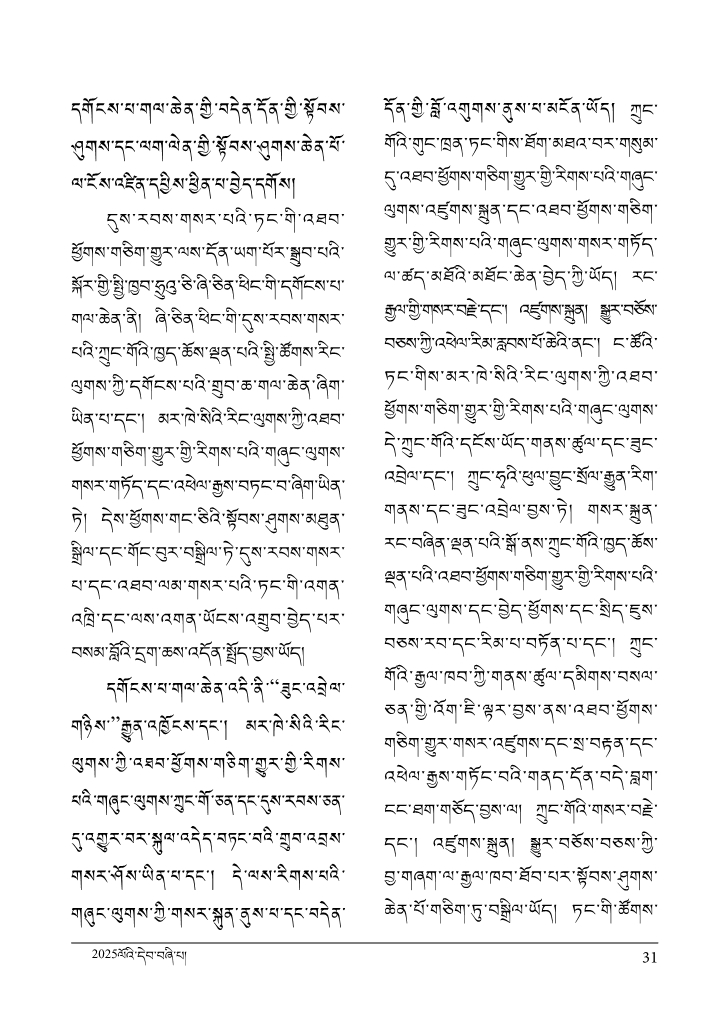 དགོངས་པ་གལ་ཆེན་གྱི་བདེན་དོན་གྱི་སྟོབས་
ཤུགས་དང་ལག་ལེན་གྱི་སྟོབས་ཤུགས་ཆེན་པོ་
ལ་ངོས་འཛིན་དབྱིས་ཕྱིན་པ་བྱེད་དགོས།
དུས་རབས་གསར་པའི་ཏང་གི་འཐབ་
ཕྱོགས་གཅིག་གྱུར་ལས་དོན་ཡག་པོར་སྒྲུབ་པའི་
སྐོར་གྱི་སྤྱི་ཁྱབ་ཧྲུའུ་ཅི་ཞི་ཅིན་ཕིང་གི་དགོངས་པ་
གལ་ཆེན་ནི། ཞི་ཅིན་ཕིང་གི་དུས་རབས་གསར་
པའི་ཀྲུང་གོའི་ཁྱད་ཆོས་ལྡན་པའི་སྤྱི་ཚོགས་རིང་
ལུགས་ཀྱི་དགོངས་པའི་གྲུབ་ཆ་གལ་ཆེན་ཞིག་
ཡིན་པ་དང་། མར་ཁེ་སིའི་རིང་ལུགས་ཀྱི་འཐབ་
ཕྱོགས་གཅིག་གྱུར་གྱི་རིགས་པའི་གཞུང་ལུགས་
གསར་གཏོད་དང་འཕེལ་རྒྱས་བཏང་བ་ཞིག་ཡིན་
ཏེ། དེས་ཕྱོགས་གང་ཅིའི་སྟོབས་ཤུགས་མཐུན་
སྒྲིལ་དང་གོང་བུར་བསྒྲིལ་ཏེ་དུས་རབས་གསར་
པ་དང་འཐབ་ལམ་གསར་པའི་ཏང་གི་འགན་
འཁྲི་དང་ལས་འགན་ཡོངས་འགྲུབ་བྱེད་པར་
བསམ་བློའི་དྲག་ཆས་འདོན་སྤྲོད་བྱས་ཡོད།
དགོངས་པ་གལ་ཆེན་འདི་ནི་“ཟུང་འབྲེལ་
གཉིས་”རྒྱུན་འཁྱོངས་དང་། མར་ཁེ་སིའི་རིང་
ལུགས་ཀྱི་འཐབ་ཕྱོགས་གཅིག་གྱུར་གྱི་རིགས་
པའི་གཞུང་ལུགས་ཀྲུང་གོ་ཅན་དང་དུས་རབས་ཅན་
དུ་འགྱུར་བར་སྐུལ་འདེད་བཏང་བའི་གྲུབ་འབྲས་
གསར་ཤོས་ཡིན་པ་དང་། དེ་ལས་རིགས་པའི་
གཞུང་ལུགས་ཀྱི་གསར་སྐྲུན་ནུས་པ་དང་བདེན་
དོན་གྱི་བློ་འགུགས་ནུས་པ་མངོན་ཡོད། ཀྲུང་
གོའི་གུང་ཁྲན་ཏང་གིས་ཐོག་མཐའ་བར་གསུམ་
དུ་འཐབ་ཕྱོགས་གཅིག་གྱུར་གྱི་རིགས་པའི་གཞུང་
ལུགས་འཛུགས་སྐྲུན་དང་འཐབ་ཕྱོགས་གཅིག་
གྱུར་གྱི་རིགས་པའི་གཞུང་ལུགས་གསར་གཏོད་
ལ་ཚད་མཐོའི་མཐོང་ཆེན་བྱེད་ཀྱི་ཡོད། རང་
རྒྱལ་གྱི་གསར་བརྗེ་དང་། འཛུགས་སྐྲུན། སྒྱུར་བཅོས་
བཅས་ཀྱི་འཕེལ་རིམ་རླབས་པོ་ཆེའི་ནང་། ང་ཚོའི་
ཏང་གིས་མར་ཁེ་སིའི་རིང་ལུགས་ཀྱི་འཐབ་
ཕྱོགས་གཅིག་གྱུར་གྱི་རིགས་པའི་གཞུང་ལུགས་
དེ་ཀྲུང་གོའི་དངོས་ཡོད་གནས་ཚུལ་དང་ཟུང་
འབྲེལ་དང་། ཀྲུང་ཧྭའི་ཕུལ་བྱུང་སྲོལ་རྒྱུན་རིག་
གནས་དང་ཟུང་འབྲེལ་བྱས་ཏེ། གསར་སྐྲུན་
རང་བཞིན་ལྡན་པའི་སྒོ་ནས་ཀྲུང་གོའི་ཁྱད་ཆོས་
ལྡན་པའི་འཐབ་ཕྱོགས་གཅིག་གྱུར་གྱི་རིགས་པའི་
གཞུང་ལུགས་དང་བྱེད་ཕྱོགས་དང་སྲིད་ཇུས་
བཅས་རབ་དང་རིམ་པ་བཏོན་པ་དང་། ཀྲུང་
གོའི་རྒྱལ་ཁབ་ཀྱི་གནས་ཚུལ་དམིགས་བསལ་
ཅན་གྱི་འོག་ཇི་ལྟར་བྱས་ནས་འཐབ་ཕྱོགས་
གཅིག་གྱུར་གསར་འཛུགས་དང་སྲ་བརྟན་དང་
འཕེལ་རྒྱས་གཏོང་བའི་གནད་དོན་བདེ་བླག་
ངང་ཐག་གཅོད་བྱས་ལ། ཀྲུང་གོའི་གསར་བརྗེ་
དང་། འཛུགས་སྐྲུན། སྒྱུར་བཅོས་བཅས་ཀྱི་
བྱ་གཞག་ལ་རྒྱལ་ཁབ་ཐོབ་པར་སྟོབས་ཤུགས་
ཆེན་པོ་གཅིག་ཏུ་བསྒྲིལ་ཡོད། ཏང་གི་ཚོགས་
2025ལོའི་དེབ་བཞི་པ། 31